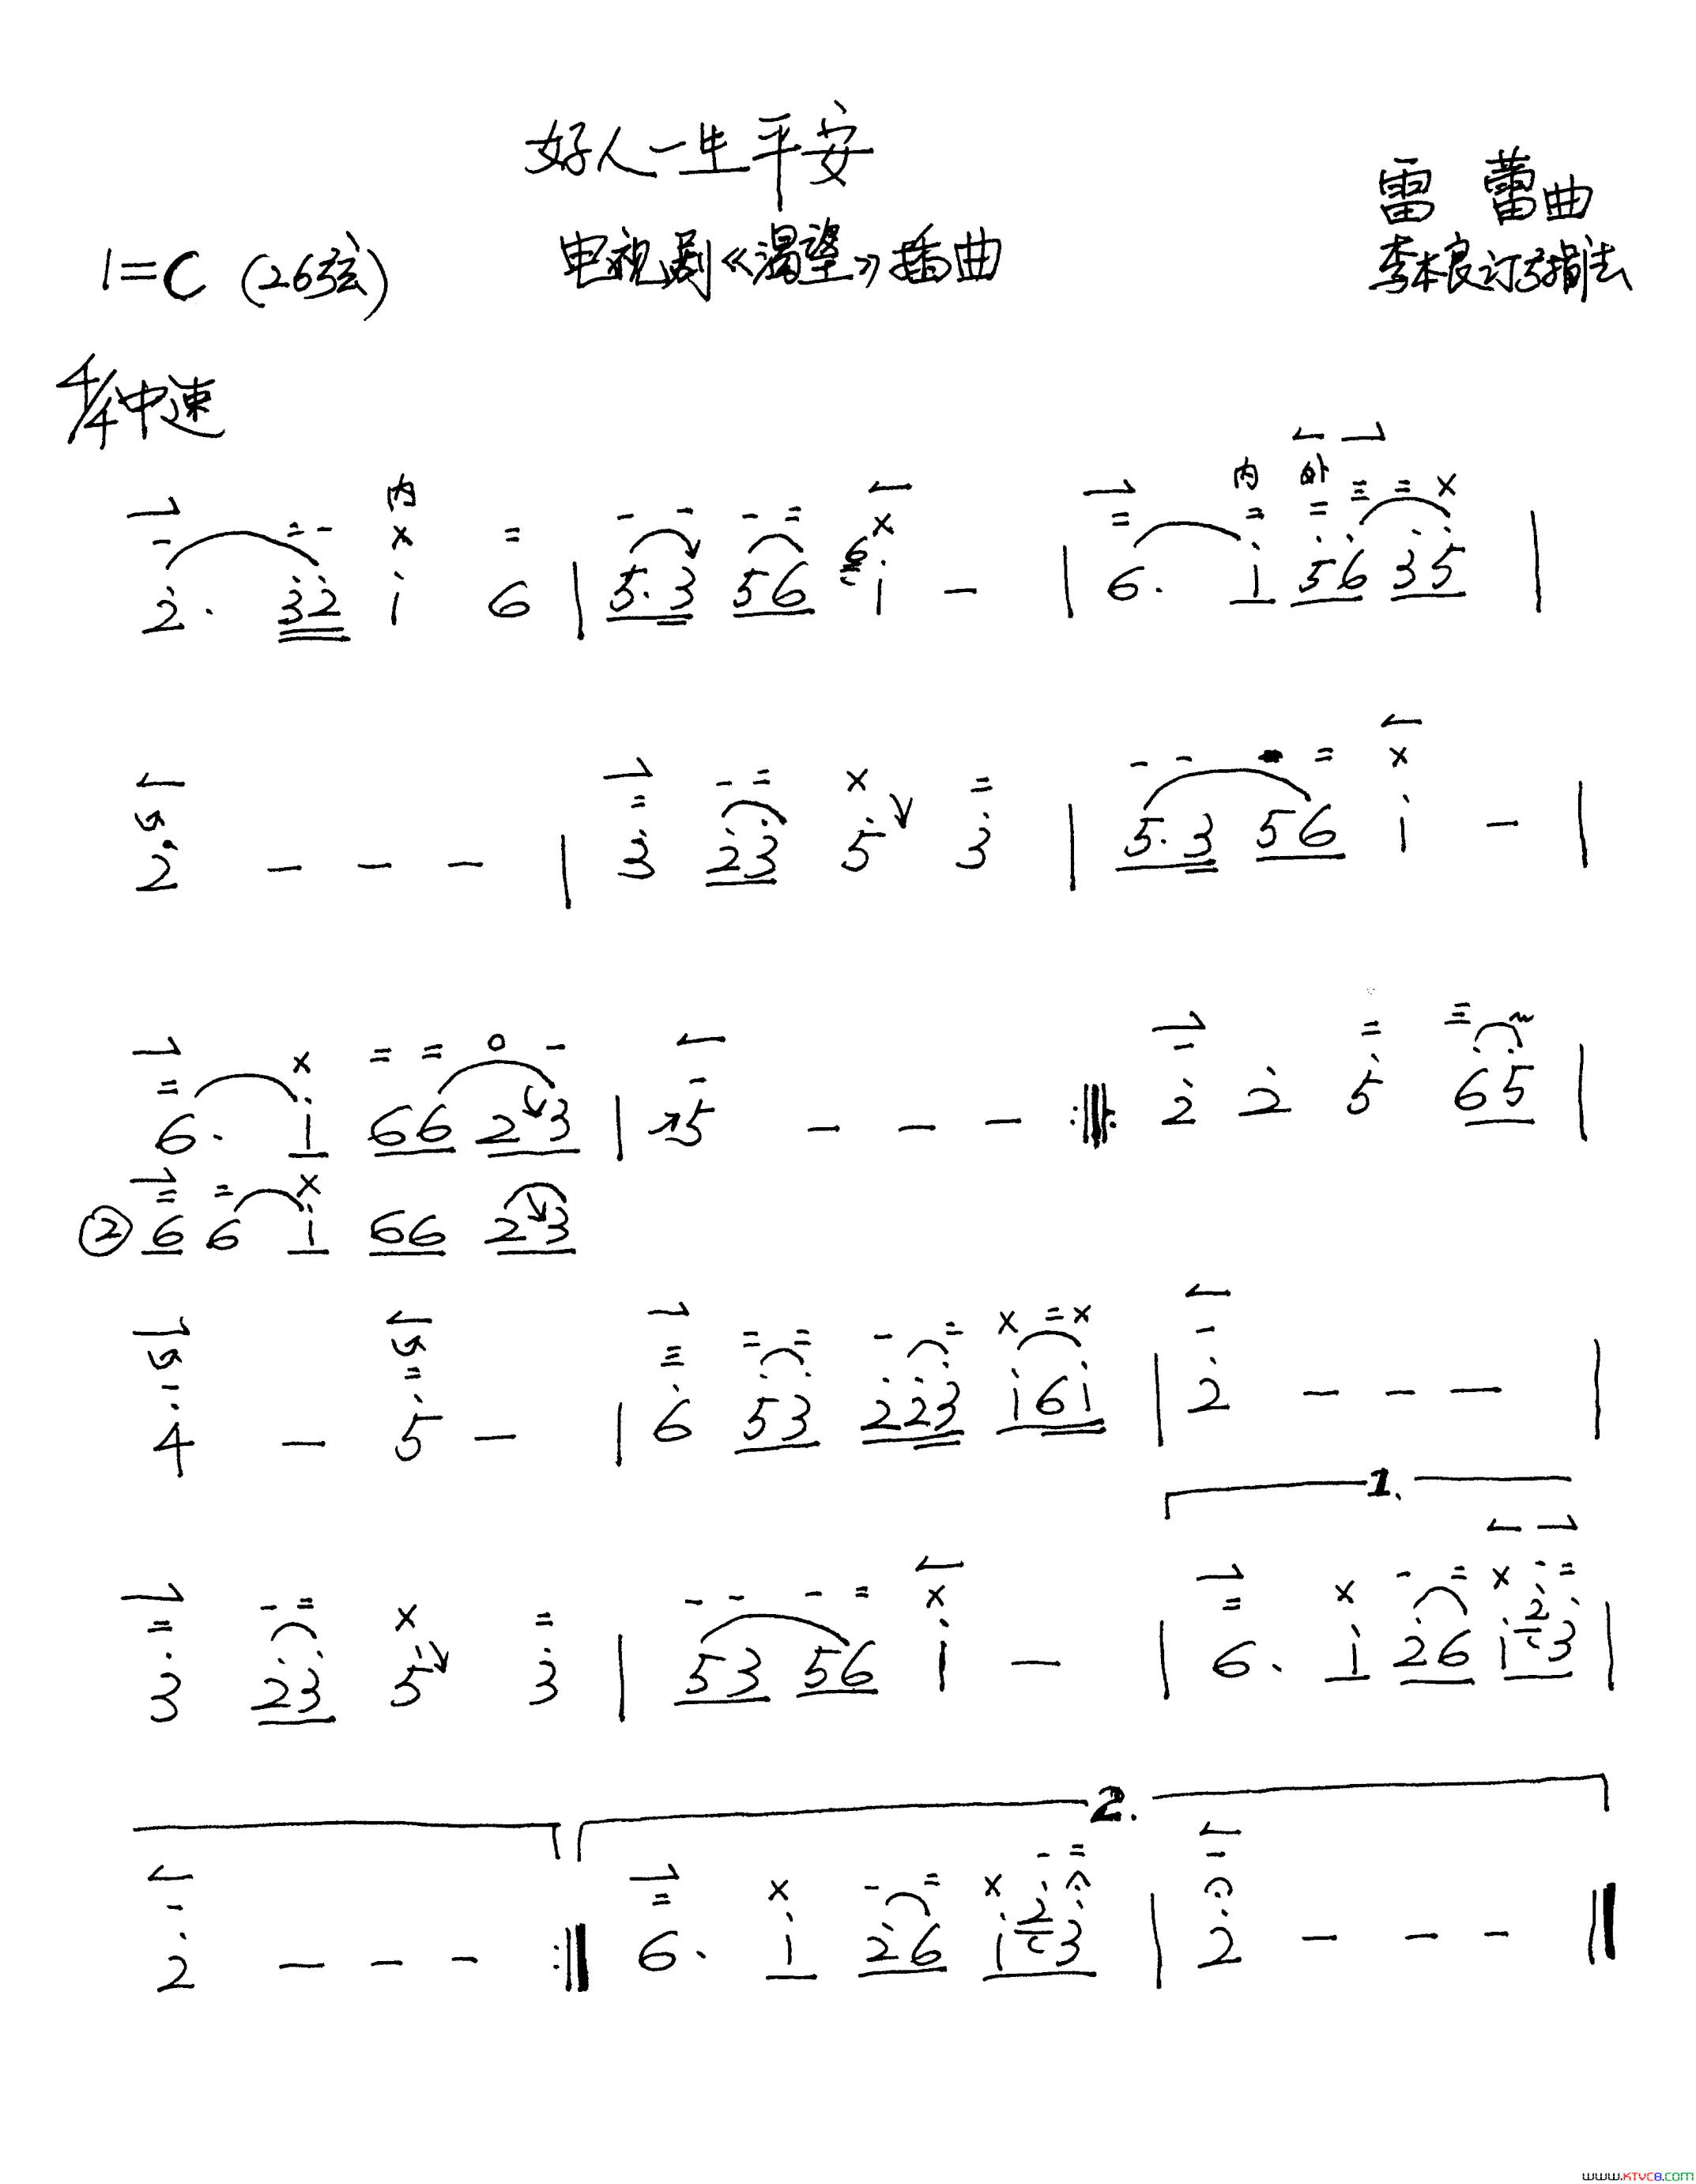 好人一生平安
雷 蕾曲
电视剧《渴望》插曲
1=C (26弦)
李本良订指法
4/4中速
内 内 外
2̇. 3̇2̇ 1̇ 6 | 5.3 56 6 1̇ - | 6. 1̇ 5̇6̇ 3̇5̇ |
2̇ - - - | 3̇ 2̇3̇ 5̇ 3̇ | 5.3 56 1̇ - |
6. 1̇ 66 23 | 5 - - - :‖: 2̇ 2̇ 5̇ 6̇5̇ |
② 6 6 1̇ 66 23
4̇ - 5̇ - | 6̇ 5̇3̇ 2̇2̇3̇ 1̇61̇ | 2̇ - - - |
1.
3̇ 2̇3̇ 5̇ 3̇ | 53 56 1̇ - | 6. 1̇ 2̇6 1̇ 2̇ 3̇ |
2.
2̇ - - - :‖ 6. 1̇ 2̇6 1̇ 2̇ 3̇ | 2̇ - - - ‖
WWW.KTVC8.COM